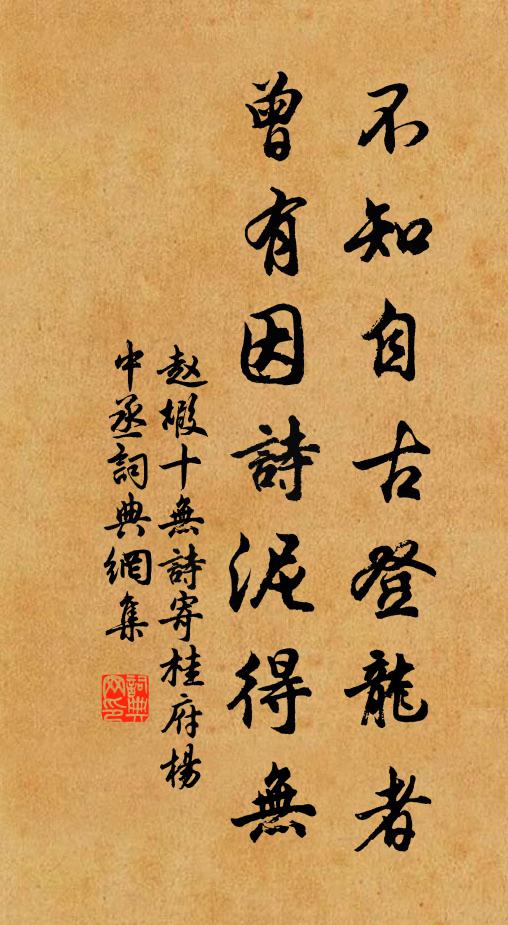 不知自古登龍者
曾有因詩泥得無
赵嘏十無詩寄桂府楊
中丞詞典網集
詞典网印